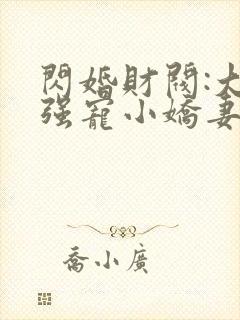 閃婚財閥:大
强寵小嬌妻
喬小廣